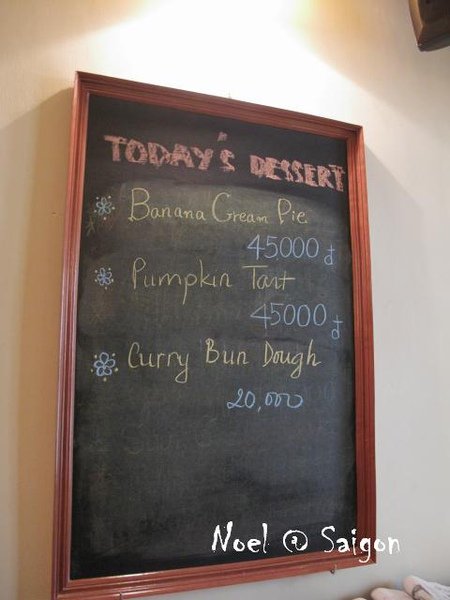 TODAY'S DESSERT
Banana Cream Pie
45000 đ
Pumpkin Tart
45000 đ
Curry Bun Dough
20,000
Noel @ Saigon